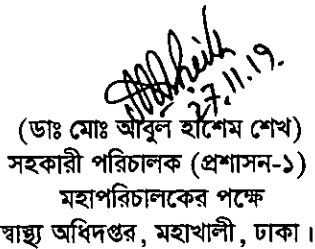 27.11.19.
(ডাঃ মোঃ আবুল হাশেম শেখ)
সহকারী পরিচালক (প্রশাসন-১)
মহাপরিচালকের পক্ষে
স্বাস্থ্য অধিদপ্তর, মহাখালী, ঢাকা।